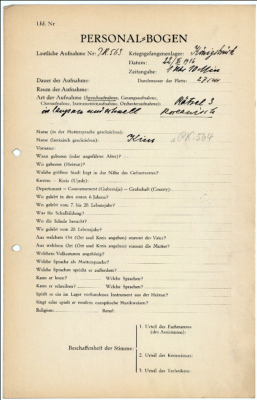 Lfd. Nr
PERSONAL=BOGEN
Lautliche Aufnahme Nr.: PK 563 Kriegsgefangenenlager: Königsbrück
Datum:
Zeitangabe:
Dauer der Aufnahme: Durchmesser der Platte: 27 cm
Raum der Aufnahme:
Art der Aufnahme (Sprechaufnahme, Gesangsaufnahme, Rätsel 3
Choraufnahme, Instrumentenaufnahme, Orchesteraufnahme): Koreanisch
langsam und schnell
Name (in der Muttersprache geschrieben): PK 564
Name (lateinisch geschrieben): Kim
Vorname:
Wann geboren (oder ungefähres Alter)?
Wo geboren (Heimat)?
Welche größere Stadt liegt in der Nähe des Geburtsortes?
Kanton — Kreis (Ujedz):
Departement — Gouvernement (Gubernija) — Grafschaft (County):
Wo gelebt in den ersten 6 Jahren?
Wo gelebt vom 7. bis 20. Lebensjahr?
Was für Schulbildung?
Wo die Schule besucht?
Wo gelebt vom 20. Lebensjahr?
Aus welchem Ort (Ort und Kreis angeben) stammt der Vater?
Aus welchem Ort (Ort und Kreis angeben) stammt die Mutter?
Welchem Volksstamm angehörig?
Welche Sprache als Muttersprache?
Welche Sprachen spricht er außerdem?
Kann er lesen? Welche Sprachen?
Kann er schreiben? Welche Sprachen?
Spielt er ein im Lager vorhandenes Instrument aus der Heimat?
Singt oder spielt er modern europäische Musikweisen?
Religion: Beruf:
Beschaffenheit der Stimme:
1. Urteil des Fachmannes
(des Assistenten):
2. Urteil des Kommissars:
3. Urteil des Technikers: